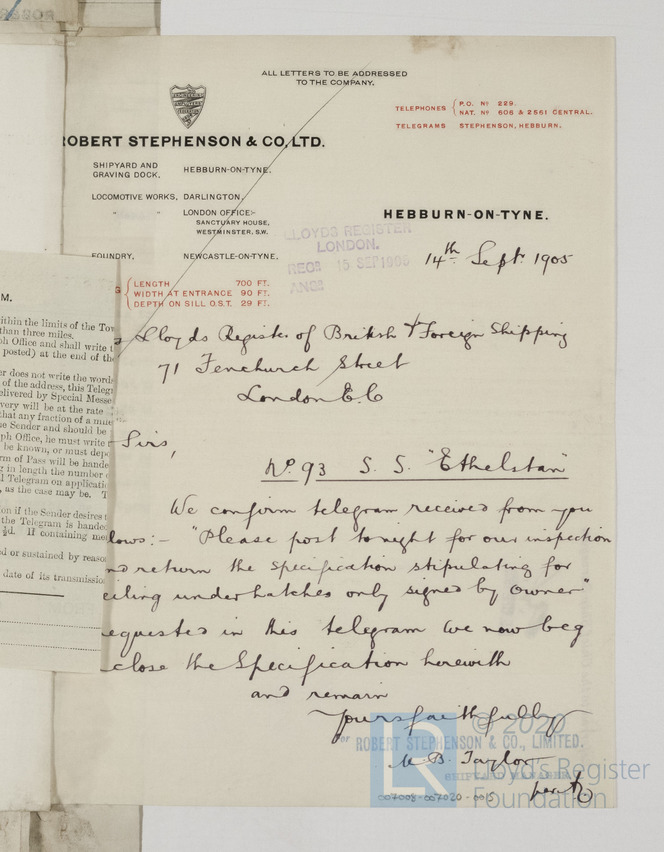 ALL LETTERS TO BE ADDRESSED
TO THE COMPANY.
TELEPHONES { P.O. Nº 229.
NAT. Nº 606 & 2561 CENTRAL.
TELEGRAMS STEPHENSON, HEBBURN.
ROBERT STEPHENSON & CO, LTD.
SHIPYARD AND
GRAVING DOCK, HEBBURN-ON-TYNE.
LOCOMOTIVE WORKS, DARLINGTON.
" " LONDON OFFICE:-
SANCTUARY HOUSE,
WESTMINSTER. S.W.
FOUNDRY, NEWCASTLE-ON-TYNE.
HEBBURN-ON-TYNE.
LLOYDS REGISTER
LONDON.
REC'D 15 SEP 1905
ANSD
14th Sept. 1905
LENGTH 700 FT.
WIDTH AT ENTRANCE 90 FT.
DEPTH ON SILL O.S.T. 29 FT.
s Lloyds Register of British & Foreign Shipping
71 Fenchurch Street
London E.C
Sirs,
No. 93 S. S. "Ethelstan"
We confirm telegram received from you
lows:- "Please post tonight for our inspection
nd return the specification stipulating for
eiling under hatches only signed by owner"
equested in this telegram we now beg
close the Specification herewith
and remain
Yours faithfully
For ROBERT STEPHENSON & CO., LIMITED.
M. B. Taylor
SHIPYARD MANAGER
per
007008-007020-0015
© 2020
LR
Lloyd's Register
Foundation
M.
ithin the limits of the Tow
than three miles.
ph Office and shall write t
posted) at the end of the
er does not write the words
of the address, this Telegr
elivered by Special Messe
very will be at the rate
that any fraction of a mile
he Sender and should be
ph Office, he must write
be known, or must depo
rm of Pass will be hande
g in length the number
d Telegram on applicati
, as the case may be. T
on if the Sender desires t
the Telegram is handed
d. If containing mo
d or sustained by reaso
date of its transmissio